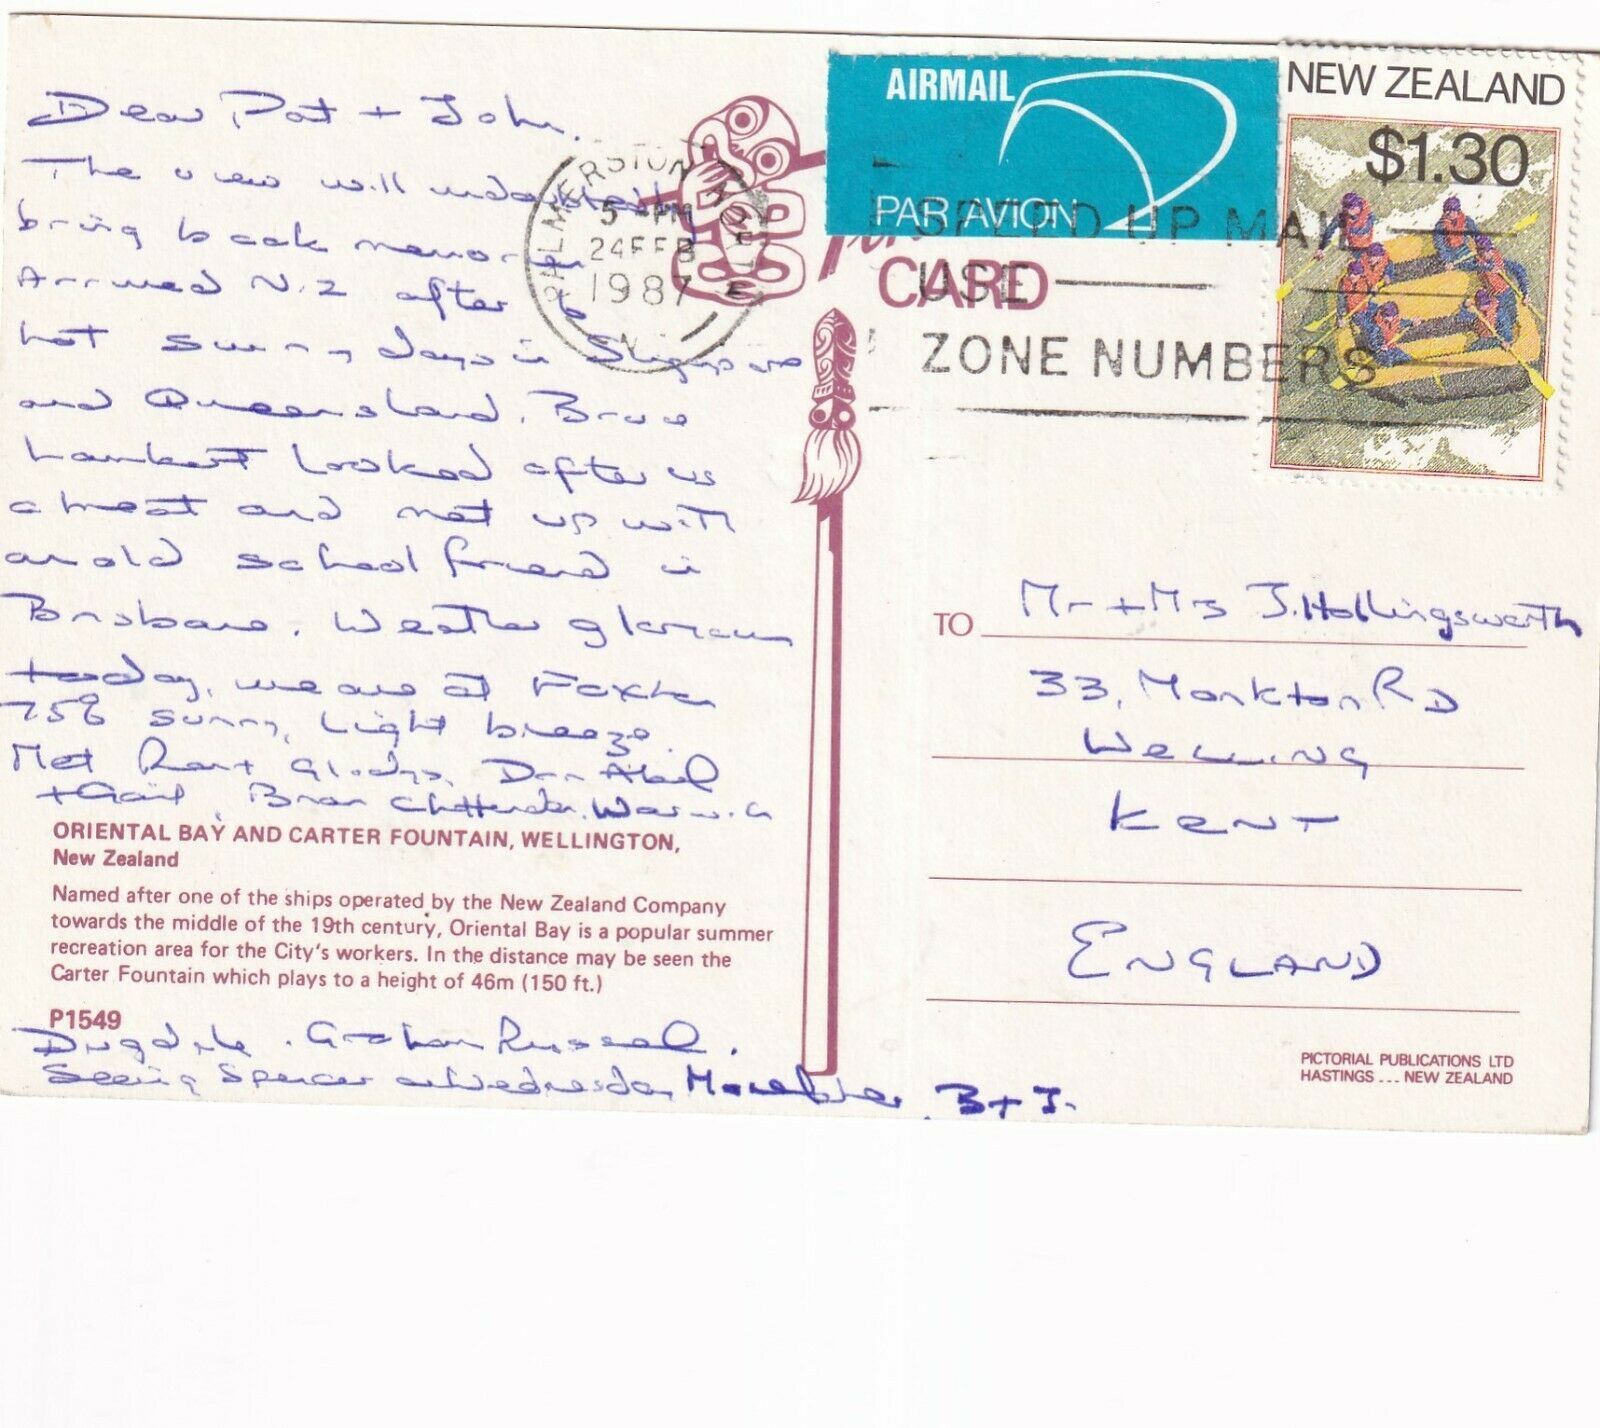 Dear Pat + John.
The view will undoubtedly
bring back memories
Arrived N.Z after 6
hot sunny days in Singapore
and Queensland. Bruce
Lambert looked after us
a treat and met up with
an old school friend in
Brisbane. Weather glorious
today, we are at Foxton
75° sunny, light breeze.
Met Ron + Gladys, Don Abel
+ Gail, Brian Chittenden, Warwick
ORIENTAL BAY AND CARTER FOUNTAIN, WELLINGTON,
New Zealand
Named after one of the ships operated by the New Zealand Company
towards the middle of the 19th century, Oriental Bay is a popular summer
recreation area for the City's workers. In the distance may be seen the
Carter Fountain which plays to a height of 46m (150 ft.)
P1549
Dugdale. Graham Russell.
Seeing Spencer on Wednesday B + J.
PALMERSTON NORTH
5 - PM
24 FEB
1987
N.Z.
CARD
AIRMAIL
PAR AVION
SPEED UP MAIL
USE
ZONE NUMBERS
NEW ZEALAND
$1.30
TO Mr + Mrs J. Hollingsworth
33, Monkton RD
Welling
Kent
ENGLAND
PICTORIAL PUBLICATIONS LTD
HASTINGS ... NEW ZEALAND